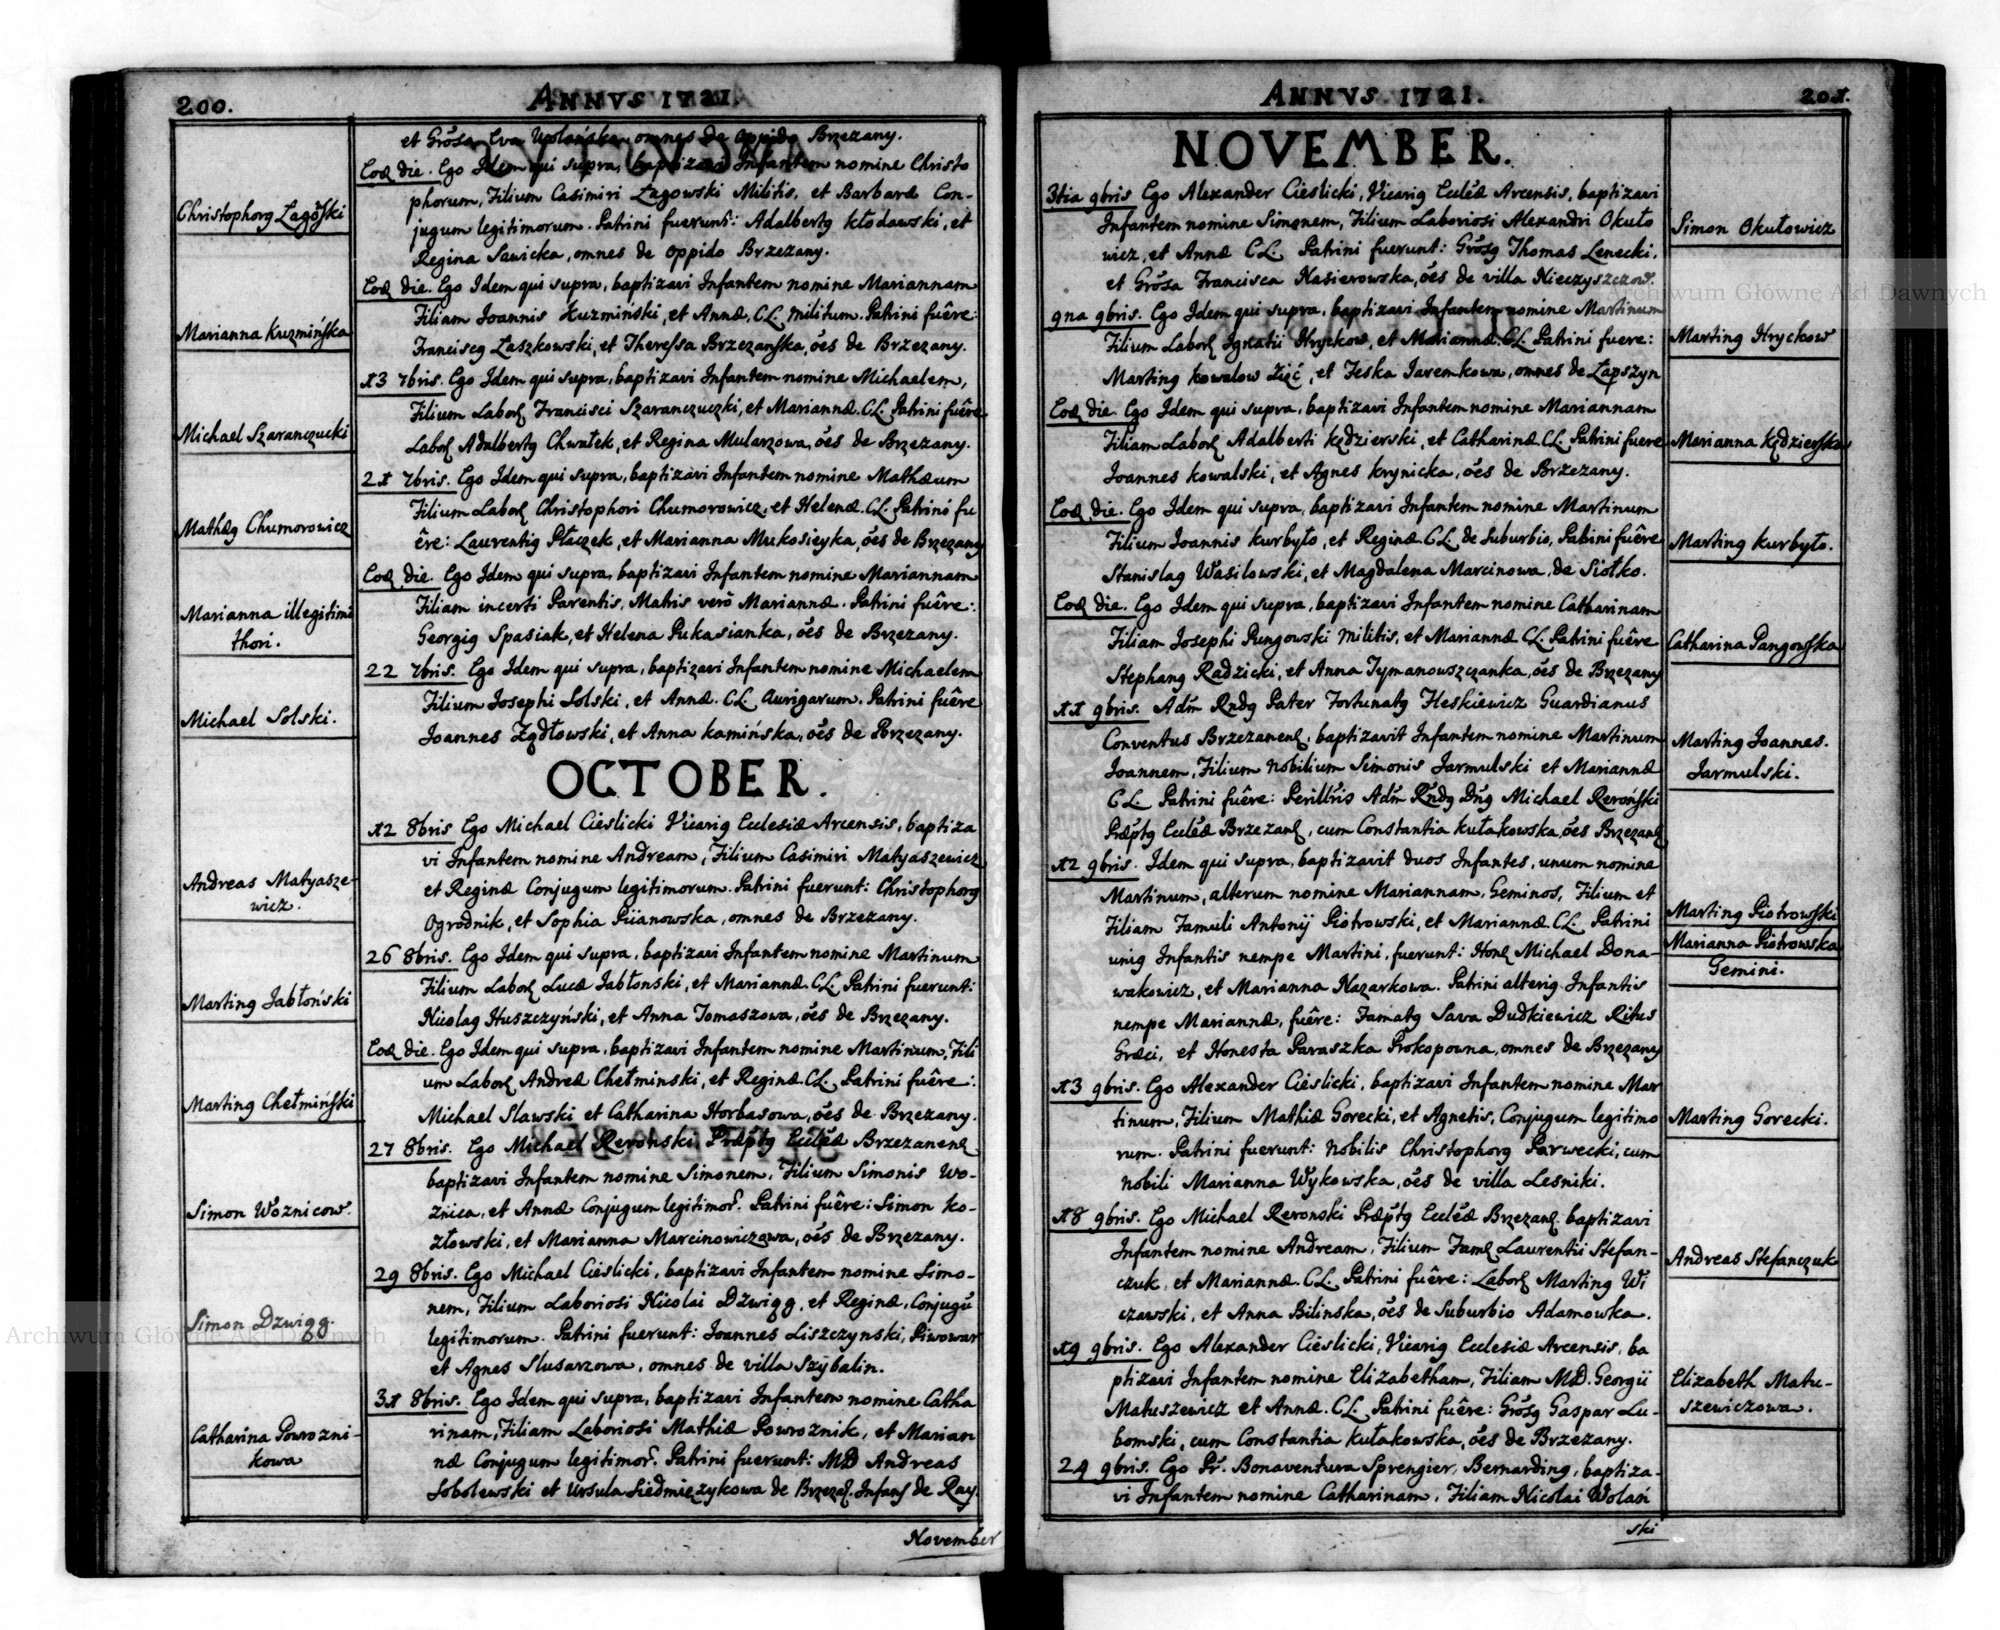 200.
ANNVS 1721.
et Grosa Eva Wolańska, omnes de oppido Brzezany.
Christophorq Łagowski
Eod die. Ego Idem qui supra, baptizavi Infantem nomine Christo
phorum, Filium Casimiri Łagowski Militis, et Barbaræ Con-
jugum legitimorum. Patrini fuerunt: Adalbertq Kłodawski, et
Regina Sawicka, omnes de oppido Brzezany.
Marianna Kuzmińska
Eod die. Ego Idem qui supra, baptizavi Infantem nomine Mariannam
Filiam Joannis Kuzmiński, et Annæ, CL. militum. Patrini fuêre:
Franciscq Łaszkowski, et Theressa Brzezańska, oẽs de Brzezany.
Michael Szaranczucki
13 7bris. Ego Idem qui supra, baptizavi Infantem nomine Michaelem,
Filium Labor Francisci Szaranczuczki, et Mariannæ. CL. Patrini fuêre
Labor Adalbertq Chwałek, et Regina Mularzowa, oẽs de Brzezany.
Mathæq Chumorowicz
21 7bris. Ego Idem qui supra, baptizavi Infantem nomine Mathæum
Filium Labor Christophori Chumorowicz, et Helenæ. CL. Patrini fu
êre: Laurentiq Płaczek, et Marianna Mukosieyka, oẽs de Brzezany
Marianna illegitimi
thori.
Eod die. Ego Idem qui supra, baptizavi Infantem nomine Mariannam
Filiam incerti Parentis, Matris verò Mariannæ. Patrini fuêre:
Georgiq Spasiak, et Helena Pukasianka, oẽs de Brzezany.
Michael Solski.
22 7bris. Ego Idem qui supra, baptizavi Infantem nomine Michaelem
Filium Josephi Solski, et Annæ. CL. Aurigarum. Patrini fuêre
Joannes Żądłowski, et Anna Kamińska, oẽs de Brzezany.
OCTOBER.
Andreas Matyasze-
wicz.
12 8bris Ego Michael Cieslicki Vicariq Ecclesiæ Arcensis, baptiza
vi Infantem nomine Andream, Filium Casimiri Matyaszewicz
et Reginæ Conjugum legitimorum. Patrini fuerunt: Christophorq
Ogrodnik, et Sophia Piianowska, omnes de Brzezany.
Martinq Jabłoński
26 8bris. Ego Idem qui supra, baptizavi Infantem nomine Martinum
Filium Labor Lucæ Jabłonski, et Mariannæ. CL. Patrini fuerunt:
Nicolaq Huszczyński, et Anna Tomaszowa, oẽs de Brzezany.
Martinq Chełmiński
Eod die. Ego Idem qui supra, baptizavi Infantem nomine Martinum, Fili
um Labor Andreæ Chełminski, et Reginæ. CL. Patrini fuêre:
Michael Slawski et Catharina Horbasowa, oẽs de Brzezany.
Simon Woznicow.
27 8bris. Ego Michael Reronski Præptq Ecclẽæ Brzezanen
baptizavi Infantem nomine Simonem, Filium Simonis Wo-
znica, et Annæ Conjugum legitimor. Patrini fuêre: Simon Ko-
złowski, et Marianna Marcinowiczowa, oẽs de Brzezany.
Simon Dzwigq.
29 8bris. Ego Michael Cieslicki, baptizavi Infantem nomine Simo-
nem, Filium Laboriosi Nicolai Dzwigq, et Reginæ, Conjugũ
legitimorum. Patrini fuerunt: Joannes Liszczynski, Piwowar
et Agnes Slusarzowa, omnes de villa Szybalin.
Catharina Powrozni-
kowa
31 8bris. Ego Idem qui supra, baptizavi Infantem nomine Catha
rinam, Filiam Laboriosi Mathiæ Powroznik, et Marian
næ Conjugum legitimor. Patrini fuerunt: MD Andreas
Sobolewski et Ursula Siedmięzykowa de Brzezań. Infans de Ray.
November
ANNVS. 1721.
201.
NOVEMBER.
3tia 9bris Ego Alexander Cieslicki, Vicariq Ecclẽæ Arcensis, baptizavi
Infantem nomine Simonem, Filium Laboriosi Alexandri Okuło
wicz, et Annæ CL. Patrini fuerunt: Grosq Thomas Lenecki,
et Grosa Francisca Nasierowska, oẽs de villa Nieczyszczow.
Simon Okułowicz
9na 9bris. Ego Idem qui supra, baptizavi Infantem nomine Martinum
Filium Labor Ignatii Hryckow, et Mariannæ. CL. Patrini fuere:
Martinq Kowalow Zięć, et Feska Jaremkowa, omnes de Łapszyn
Martinq Hryckow
Eod die. Ego Idem qui supra, baptizavi Infantem nomine Mariannam
Filiam Labor Adalberti Kędzierski, et Catharinæ CL. Patrini fuere
Joannes Kowalski, et Agnes Krynicka, oẽs de Brzezany.
Marianna Kędzierska
Eod die. Ego Idem qui supra, baptizavi Infantem nomine Martinum
Filium Joannis Kurbyło, et Reginæ. CL. de Suburbio, Patrini fuêre
Stanislaq Wasilowski, et Magdalena Marcinowa, de Siołko.
Martinq Kurbyło.
Eod die. Ego Idem qui supra, baptizavi Infantem nomine Catharinam
Filiam Josephi Pungowski Militis, et Mariannæ CL. Patrini fuêre
Stephanq Radzicki, et Anna Tymanowszczanka, oẽs de Brzezany
Catharina Pangowska
11 9bris. Adm Rndq Pater Fortunatq Heskiewicz Guardianus
Conventus Brzezanen, baptizavit Infantem nomine Martinum
Joannem, Filium Nobilium Simonis Jarmulski et Mariannæ
CL. Patrini fuêre: Perillris Adm Rndq Dnq Michael Reroński
Præptq Ecclẽæ Brzezan, cum Constantia Kułakowska, oẽs Brzezan
Martinq Joannes.
Jarmulski.
12 9bris. Idem qui supra, baptizavit duos Infantes, unum nomine
Martinum, alterum nomine Mariannam, Geminos, Filium et
Filiam Famuli Antonij Piotrowski, et Mariannæ. CL. Patrini
uniq Infantis nempe Martini, fuerunt: Hon Michael Dona-
wakowicz, et Marianna Nazarkowa. Patrini alteriq Infantis
nempe Mariannæ, fuêre: Famatq Sava Dudkiewicz Ritus
Græci, et Honesta Paraszka Prokopowna, omnes de Brzezany
Martinq Piotrowski
Marianna Piotrowska
Gemini.
13 9bris. Ego Alexander Cieslicki, baptizavi Infantem nomine Mar
tinum, Filium Mathiæ Gorecki, et Agnetis, Conjugum legitimo
rum. Patrini fuerunt: Nobilis Christophorq Parwecki, cum
Nobili Marianna Wykowska, oẽs de villa Lesniki.
Martinq Gorecki.
18 9bris. Ego Michael Reronski Præptq Ecclẽæ Brzezan baptizavi
Infantem nomine Andream, Filium Fam Laurentii Stefan-
czuk, et Mariannæ. CL. Patrini fuêre: Labor Martinq Wi
czawski, et Anna Bilinska, oẽs de Suburbio Adamowka.
Andreas Stefanczuk
19 9bris. Ego Alexander Cieslicki, Vicariq Ecclesiæ Arcensis, ba
ptizavi Infantem nomine Elizabetham, Filiam MD. Georgii
Matuszewicz et Annæ. CL. Patrini fuêre: Grosq Gaspar Lu-
bomski, cum Constantia Kułakowska, oẽs de Brzezany.
Elizabeth Matu-
szewiczowa.
24 9bris. Ego Pr. Bonaventura Sprengier, Bernardinq, baptiza-
vi Infantem nomine Catharinam, Filiam Nicolai Wolań
ski
Archiwum Główne Akt Dawnych
Archiwum Główne Akt Dawnych